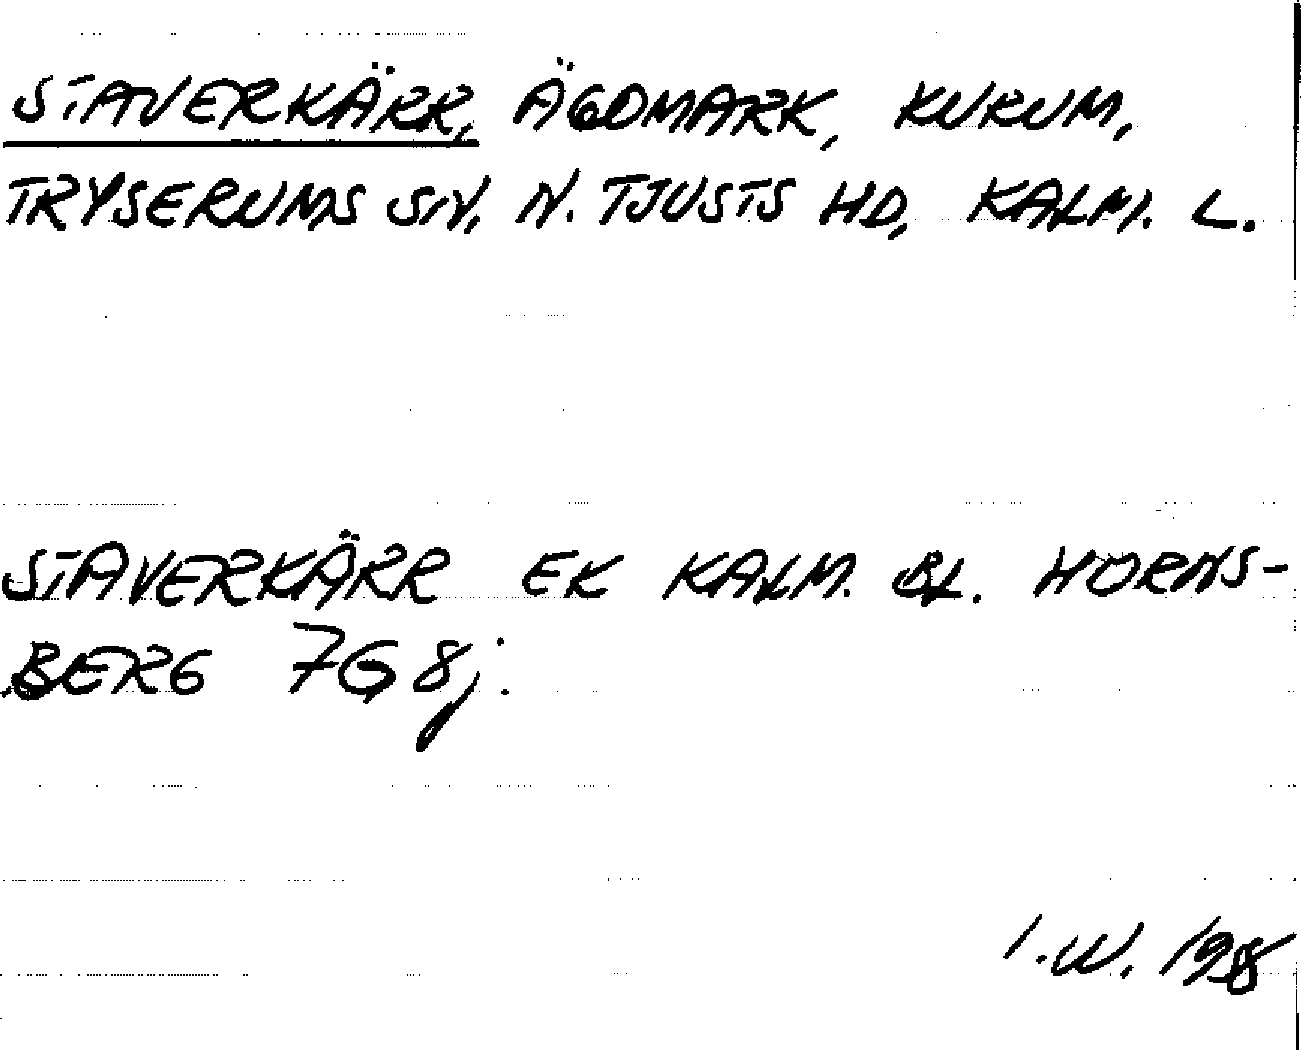 STAVERKÄRR, ÄGOMARK, KURUM,
TRYSERUMS SN, N. TJUSTS HD, KALM. L.
STAVERKÄRR EK KALM. BL. HORNS-
BERG 7G 8j.
I.W. 1958